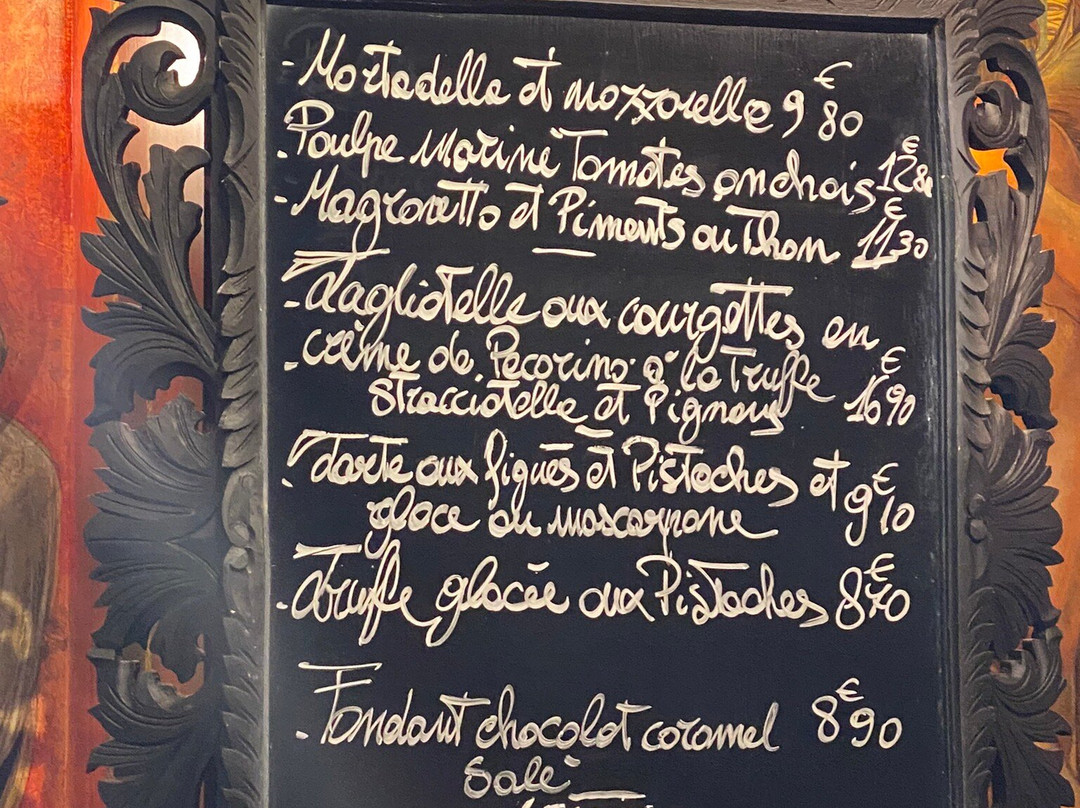 - Mortadella et mozzarella 9€80
- Poulpe mariné Tomates anchois 12€80
- Magronetto et Piments au Thon 11€30
- Tagliatelle aux courgettes en
- crème de Pecorino à la Truffe
Stracciatella et Pignons 16€90
- Tarte aux figues et Pistaches et
glace au mascarpone 9€10
- Truffe glacée aux Pistaches 8€70
- Fondant chocolat caramel 8€90
Salé